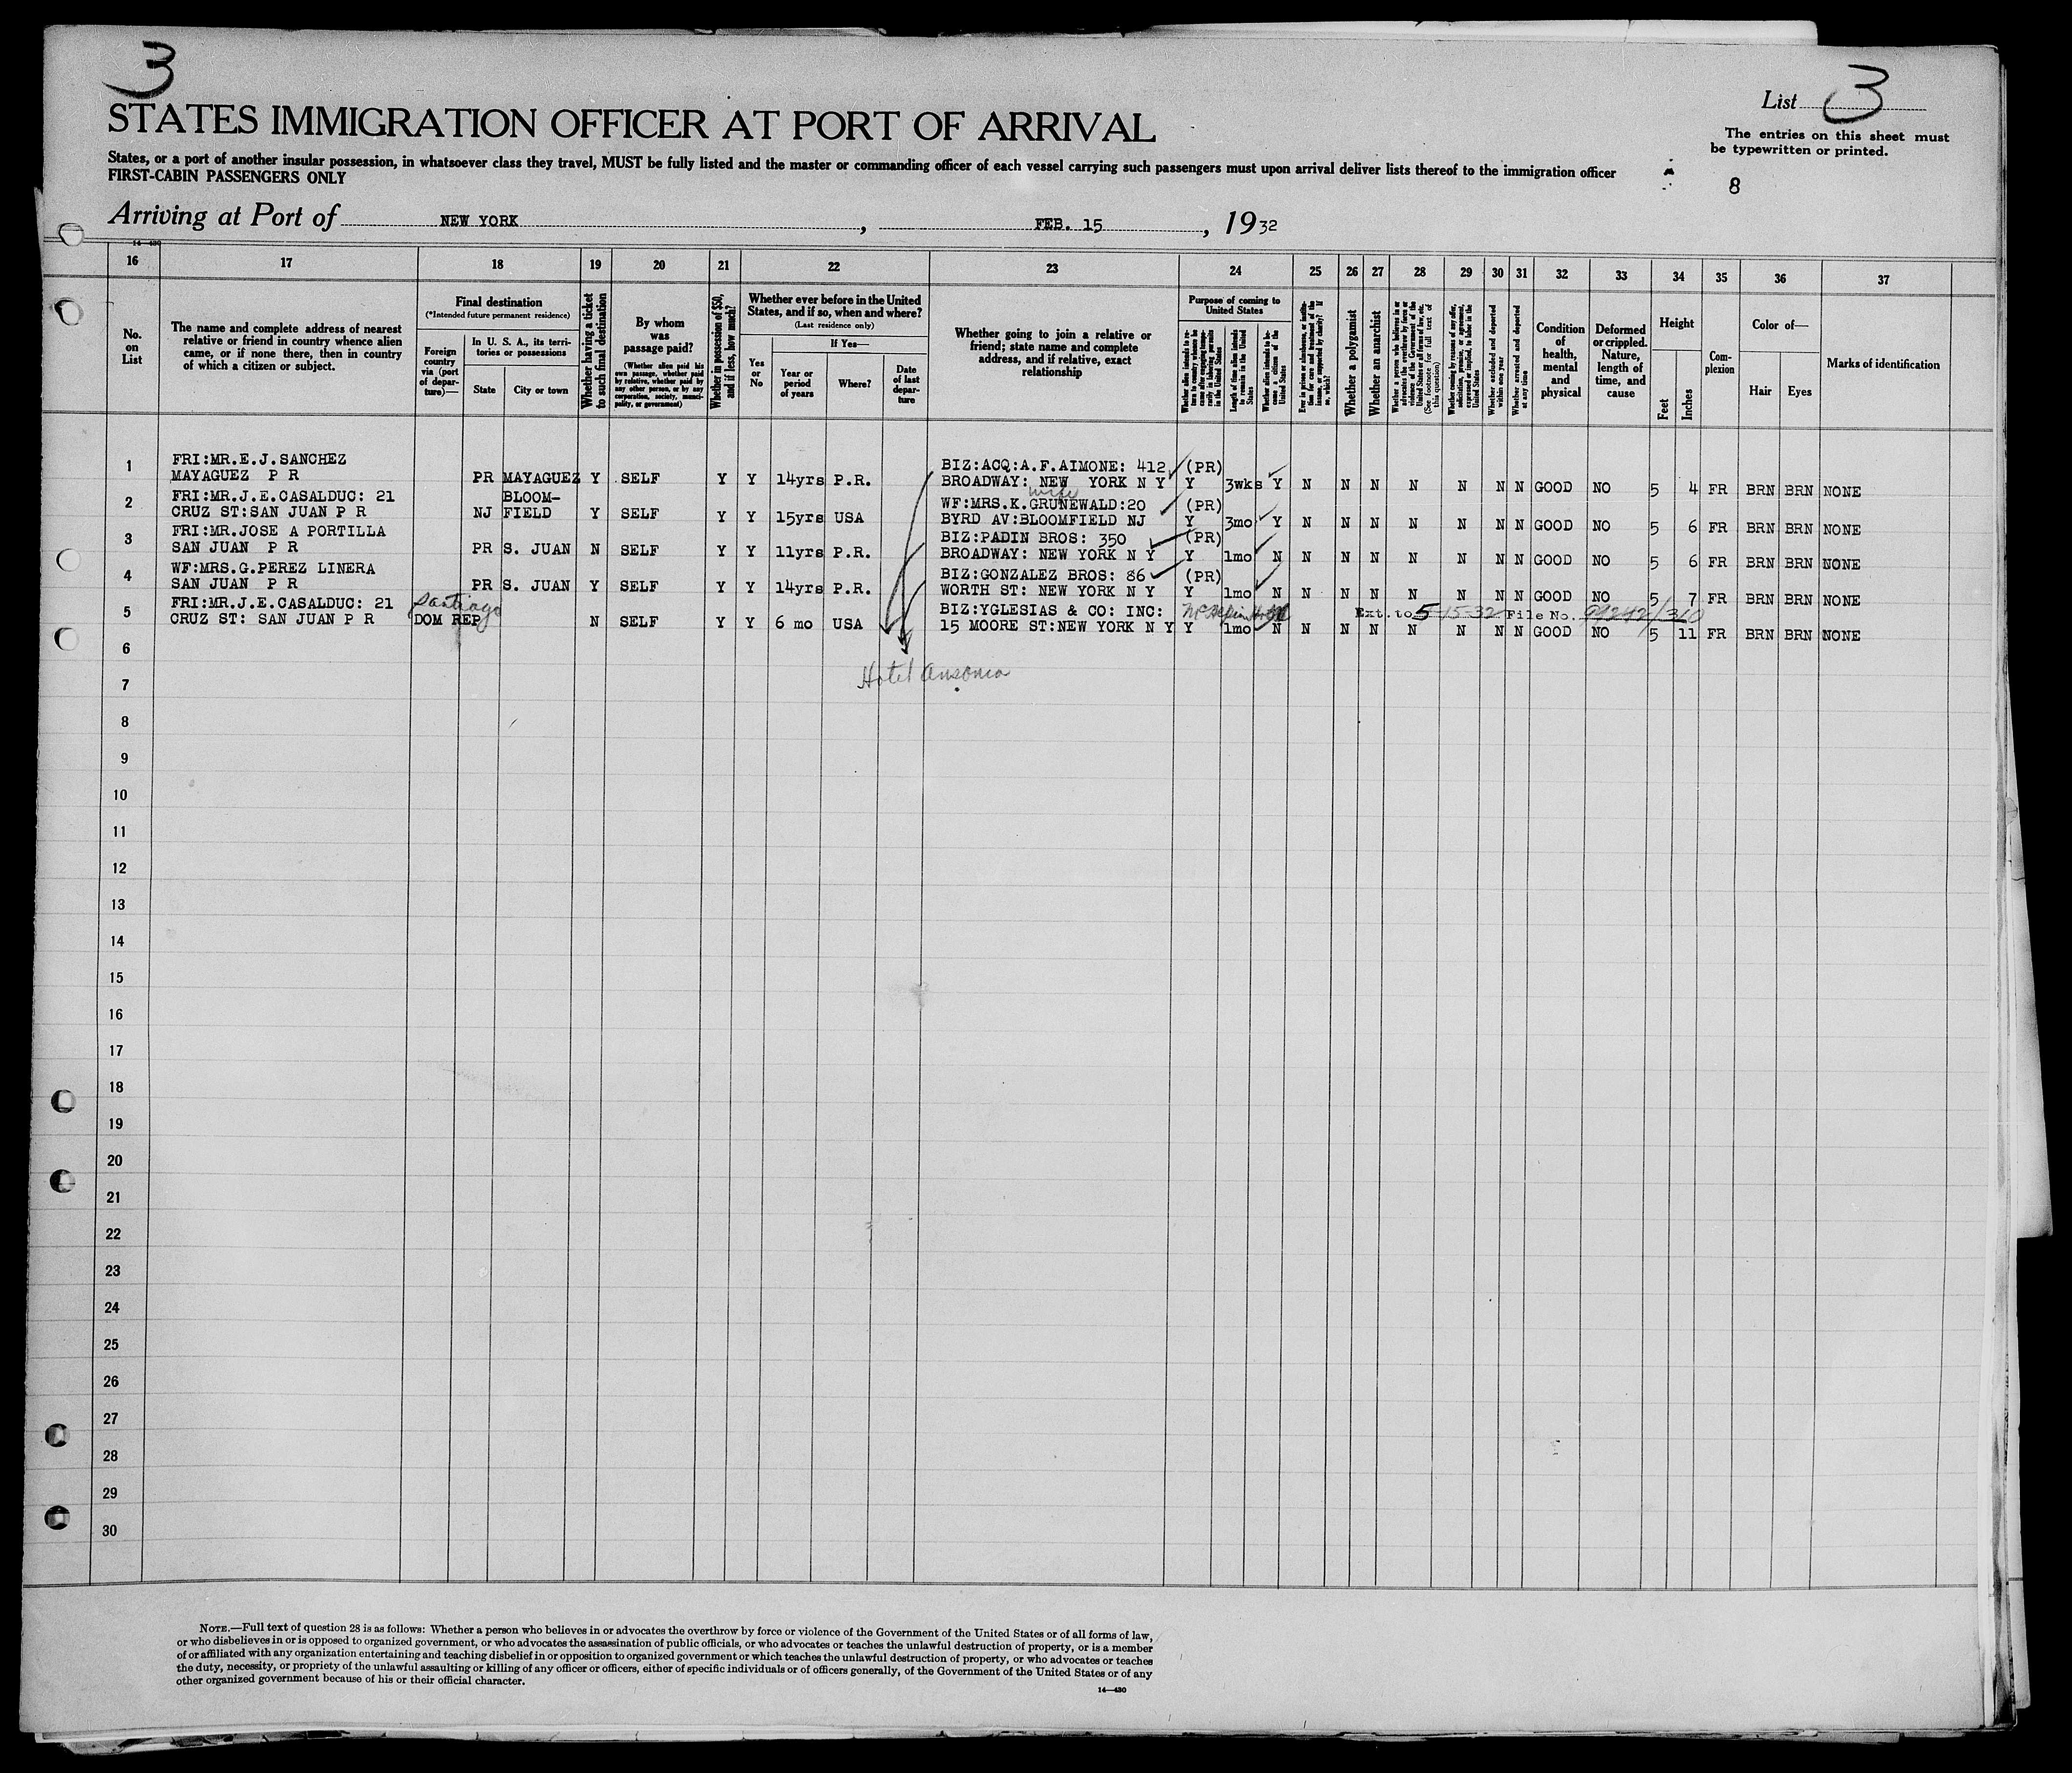 3
List 3
STATES IMMIGRATION OFFICER AT PORT OF ARRIVAL
The entries on this sheet must
be typewritten or printed.
States, or a port of another insular possession, in whatsoever class they travel, MUST be fully listed and the master or commanding officer of each vessel carrying such passengers must upon arrival deliver lists thereof to the immigration officer
FIRST-CABIN PASSENGERS ONLY
8
Arriving at Port of NEW YORK, FEB. 15, 1932
14—430
16 17 18 19 20 21 22 23 24 25 26 27 28 29 30 31 32 33 34 35 36 37
No. on List
The name and complete address of nearest relative or friend in country whence alien came, or if none there, then in country of which a citizen or subject.
Final destination
(*Intended future permanent residence)
Foreign country via (port of departure)—
In U. S. A., its territories or possessions
State
City or town
Whether having a ticket to such final destination
By whom was passage paid?
(Whether alien paid his own passage, whether paid by relative, whether paid by any other person, or by any corporation, society, municipality, or government)
Whether in possession of $50, and if less, how much?
Whether ever before in the United States, and if so, when and where?
(Last residence only)
Yes or No
If Yes—
Year or period of years
Where?
Date of last departure
Whether going to join a relative or friend; state name and complete address, and if relative, exact relationship
Purpose of coming to United States
Whether alien intends to return to country whence he came after engaging temporarily in laboring pursuits in the United States
Length of time alien intends to remain in the United States
Whether alien intends to become a citizen of the United States
Ever in prison or almshouse, or institution for care and treatment of the insane, or supported by charity? If so, which?
Whether a polygamist
Whether an anarchist
Whether a person who believes in or advocates the overthrow by force or violence of the Government of the United States or all forms of law, etc. (See footnote for full text of this question)
Whether coming by reasons of any offer, solicitation, promise, or agreement, expressed or implied, to labor in the United States
Whether excluded and deported within one year
Whether arrested and deported at any time
Condition of health, mental and physical
Deformed or crippled. Nature, length of time, and cause
Height
Feet
Inches
Complexion
Color of—
Hair
Eyes
Marks of identification
1 FRI:MR.E.J.SANCHEZ BIZ:ACQ:A.F.AIMONE: 412 (PR)
MAYAGUEZ P R PR MAYAGUEZ Y SELF Y Y 14yrs P.R. BROADWAY: NEW YORK N Y Y 3wks Y N N N N N N N GOOD NO 5 4 FR BRN BRN NONE
wife
2 FRI:MR.J.E.CASALDUC: 21 BLOOM- WF:MRS.K.GRUNEWALD:20 (PR)
CRUZ ST:SAN JUAN P R NJ FIELD Y SELF Y Y 15yrs USA BYRD AV:BLOOMFIELD NJ Y 3mo Y N N N N N N N GOOD NO 5 6 FR BRN BRN NONE
3 FRI:MR.JOSE A PORTILLA BIZ:PADIN BROS: 350 (PR)
SAN JUAN P R PR S. JUAN N SELF Y Y 11yrs P.R. BROADWAY: NEW YORK N Y Y 1mo N N N N N N N N GOOD NO 5 6 FR BRN BRN NONE
4 WF:MRS.G.PEREZ LINERA BIZ:GONZALEZ BROS: 86 (PR)
SAN JUAN P R PR S. JUAN Y SELF Y Y 14yrs P.R. WORTH ST: NEW YORK N Y Y 1mo N N N N N N N N GOOD NO 5 7 FR BRN BRN NONE
5 FRI:MR.J.E.CASALDUC: 21 Santiago BIZ:YGLESIAS & CO: INC: Ext. to 5-15-32 File No. 99242/310
CRUZ ST: SAN JUAN P R DOM REP N SELF Y Y 6 mo USA 15 MOORE ST:NEW YORK N Y Y 1mo N N N N N N N N GOOD NO 5 11 FR BRN BRN NONE
6
Hotel Ansonia
7
8
9
10
11
12
13
14
15
16
17
18
19
20
21
22
23
24
25
26
27
28
29
30
NOTE.—Full text of question 28 is as follows: Whether a person who believes in or advocates the overthrow by force or violence of the Government of the United States or of all forms of law,
or who disbelieves in or is opposed to organized government, or who advocates the assassination of public officials, or who advocates or teaches the unlawful destruction of property, or is a member
of or affiliated with any organization entertaining and teaching disbelief in or opposition to organized government or which teaches the unlawful destruction of property, or who advocates or teaches
the duty, necessity, or propriety of the unlawful assaulting or killing of any officer or officers, either of specific individuals or of officers generally, of the Government of the United States or of any
other organized government because of his or their official character.
14—430